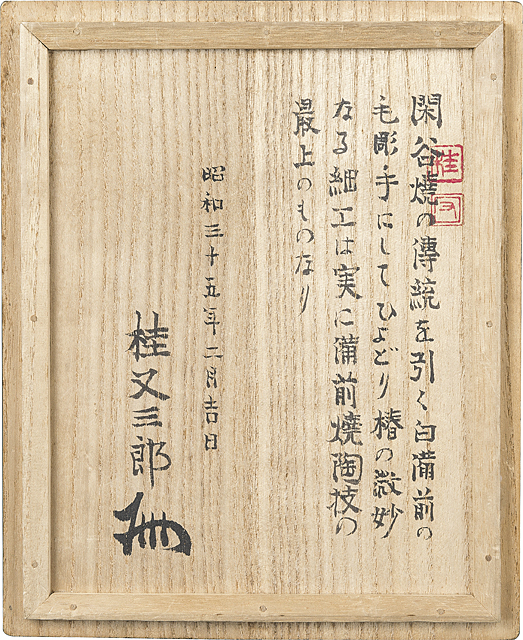 閑谷燒の傳統を引く白備前の
毛彫手にしてひよどり椿の微妙
なる細工は実に備前燒陶技の
最上のものなり
昭和三十五年二月吉日
桂又三郎
桂
又